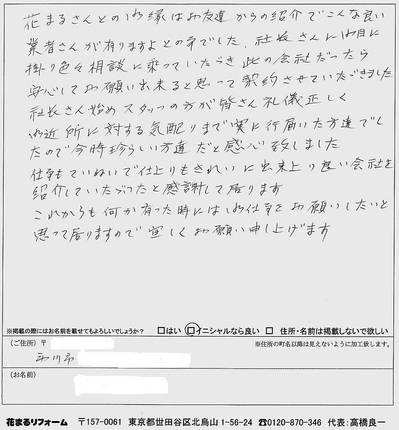 花まるさんとのお縁はお友達からの紹介でこんな良い
業者さんが有りますよとの事でした。社長さんにお目に
掛り色々相談に乗っていただき此の会社だったら
安心してお願い出来ると思って契約させていただきました
社長さん始めスタッフの方が皆さん礼儀正しく
お近所に対する気配りまで実に行届いた方達でし
たので今時珍らしい方達だと感心致しました
仕事もていねいで仕上りもきれいに出来上り良い会社を
紹介していただったと感謝して居ります
これからも何か有った時にはお仕事をお願いしたいと
思って居りますので宜しくお願い申し上げます
※掲載の際にはお名前を載せてもよろしいでしょうか? □はい □イニシャルなら良い □ 住所・名前は掲載しないで欲しい
(ご住所) 〒 ※住所の町名以降は見えないように加工致します。
市
(お名前)
花まるリフォーム 〒157-0061 東京都世田谷区北烏山1-56-24 ☎0120-870-346 代表:高橋良一